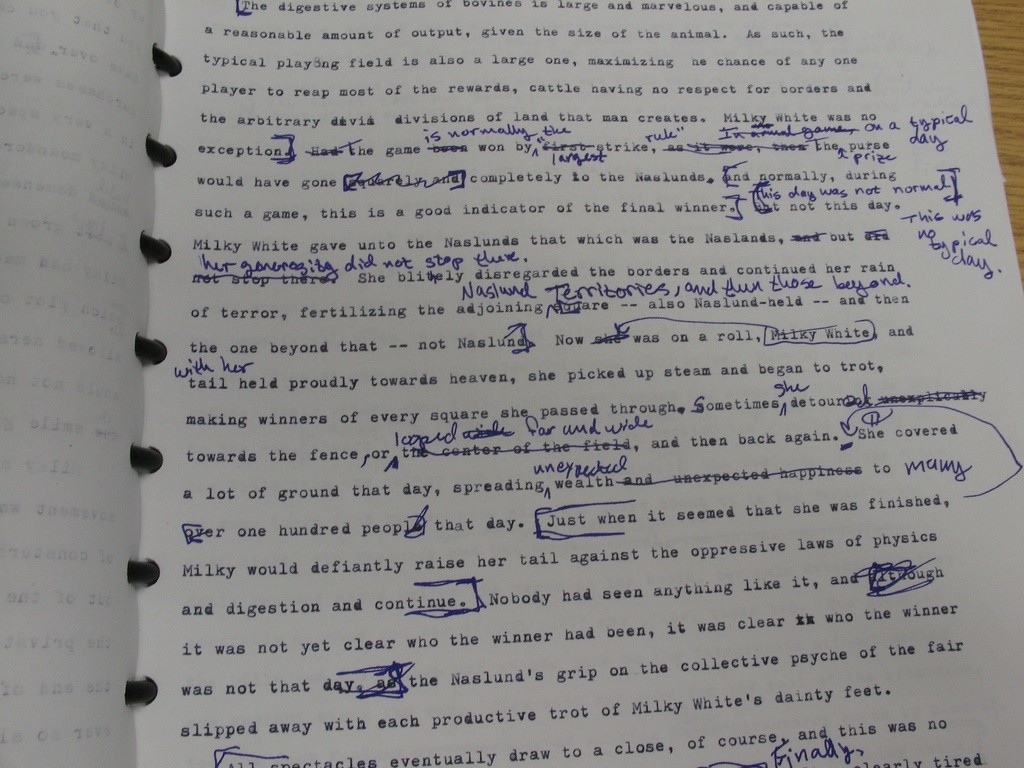 The digestive systems of bovines is large and marvelous, and capable of
a reasonable amount of output, given the size of the animal. As such, the
typical play3ng field is also a large one, maximizing he chance of any one
player to reap most of the rewards, cattle having no respect for borders and
the arbitrary divisions of land that man creates. Milky White was no
is normally the rule" In annual game, on a typical day
exception. Had the game been won by "first-strike, as it were, then the purse
largest prize
would have gone squarely and completely to the Naslunds. and normally, during
this day was not normal
such a game, this is a good indicator of the final winner. But not this day.
This was no typical day.
Milky White gave unto the Naslunds that which was the Naslands, and but did
her generosity did not stop there.
not stop there. She blithely disregarded the borders and continued her rain
Naslund Territories, and then those beyond.
of terror, fertilizing the adjoining square -- also Naslund-held -- and then
the one beyond that -- not Naslund. Now she was on a roll, Milky White, and
with her
tail held proudly towards heaven, she picked up steam and began to trot,
she
making winners of every square she passed through. Sometimes detoured unexplicably
looped wide far and wide
towards the fence, or the center of the field, and then back again. She covered
unexpected
a lot of ground that day, spreading wealth and unexpected happiness to many
over one hundred people that day. Just when it seemed that she was finished,
Milky would defiantly raise her tail against the oppressive laws of physics
and digestion and continue. Nobody had seen anything like it, and although
it was not yet clear who the winner had been, it was clear who the winner
was not that day, as the Naslund's grip on the collective psyche of the fair
slipped away with each productive trot of Milky White's dainty feet.
All spectacles eventually draw to a close, of course, and this was no
Finally,
clearly tired